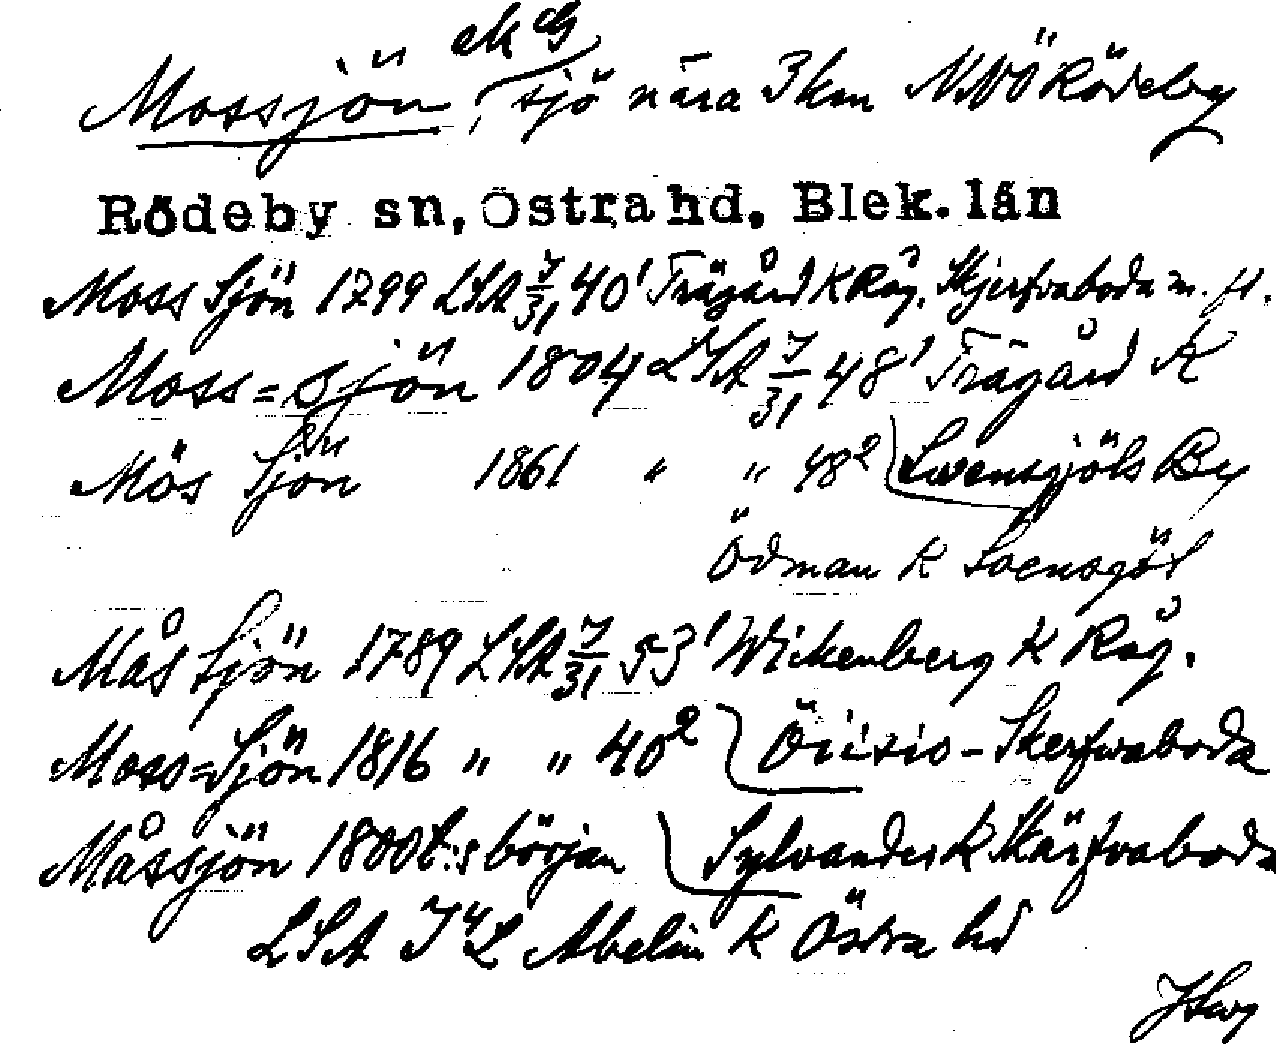 ek G
Mossjön, sjö nära 3 km NNÖ Rödeby
Rödeby sn, Östra hd, Blek. län
Moss Sjön 1799 LSA 7/31, 40¹ Trägård K Råg. Skjerfvaboda m. fl.
Moss=sjön 1804 LSA 7/31, 48¹ Trägård K
Mös Sjön 1861 " " 48² Svensgjöls By
Ödman K Svensgöl
Mås Sjön 1789 LSA 7/31, 53¹ Wickenberg K Råg.
Moss=Sjön 1816 " " 40² Skerfvaboda
Måssjön 1800t:s början Sylvander K Skärfvaboda
LSA Abelin K Östra hd